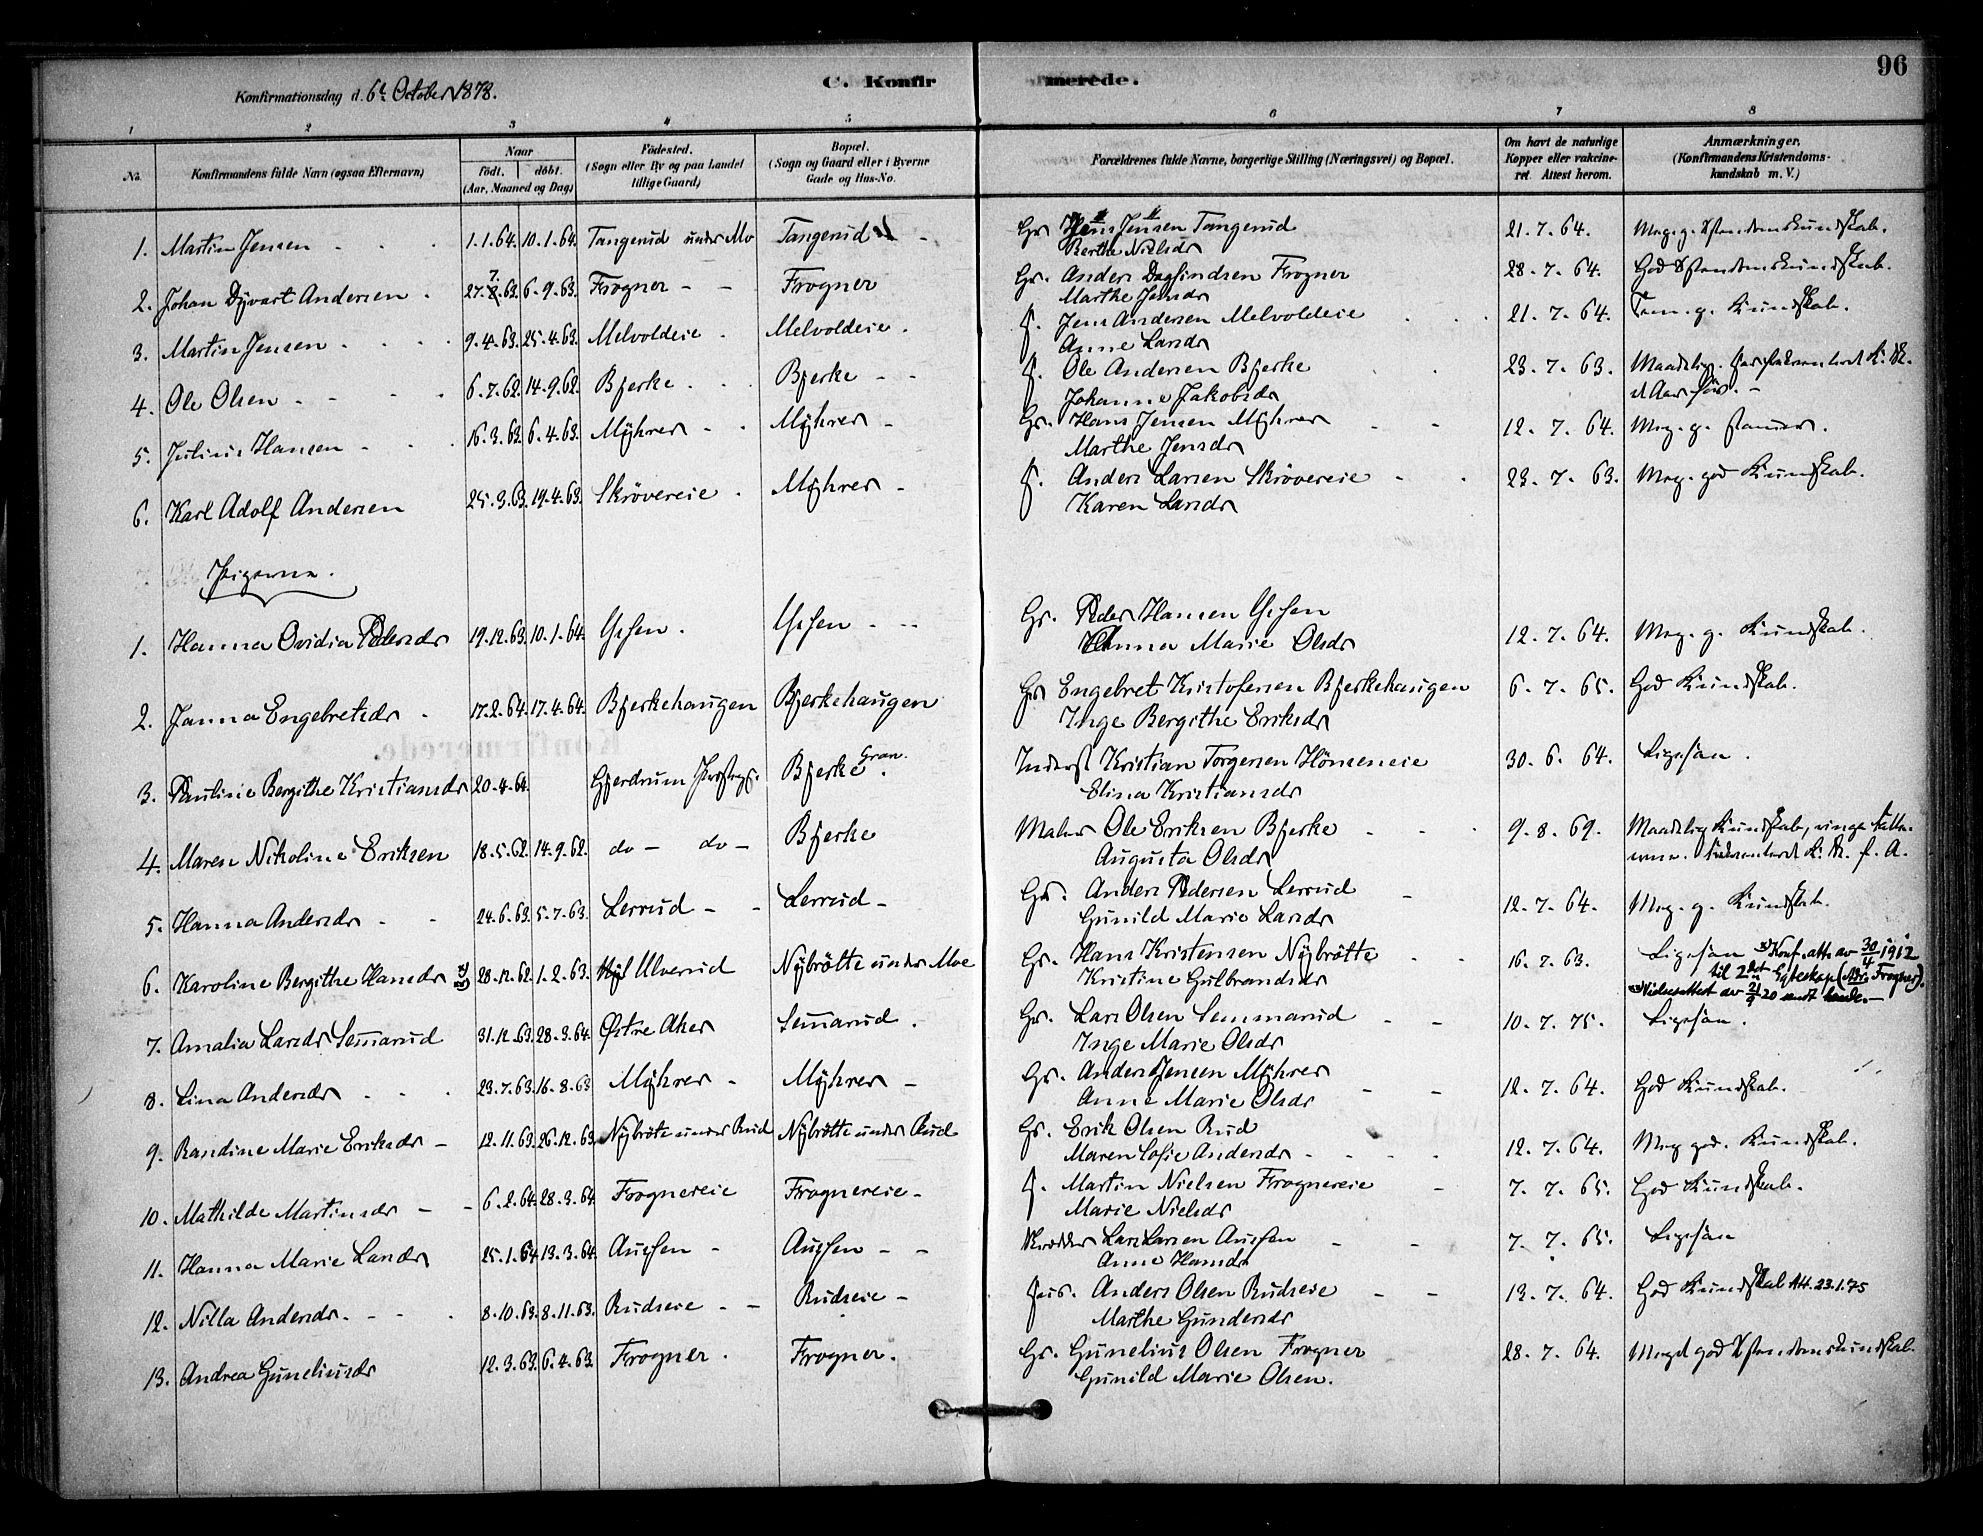 96
Konfirmationsdag d. 6te October 1878.
C. Konfirmerede.
1 2 3 4 5 6 7 8
No. Konfirmandens fulde Navn (ogsaa Efternavn) Naar født. døbt. (Aar, Maaned og Dag) Fødested. (Sogn eller By og paa Landet tillige Gaard) Bopæl. (Sogn og Gaard eller i Byerne Gade og Hus-No. Forældrenes fulde Navne, borgerlige Stilling (Næringsvei) og Bopæl. Om havt de naturlige Kopper eller vakcineret. Attest herom. Anmærkninger. (Konfirmandens Kristendomskundskab m. V.)
1. Martin Jensen 1.1.64. 10.1.64. Tangerud under Mo Tangerud Gr. Jens Jensen Tangerud 21.7.64. Meg. g. Kundskab.
Berthe Nielsdr
2. Johan Dyvart Andersen 27.7.63. 6.9.63. Frogner Frogner Gr. Anders Dagfindsen Frogner 28.7.64. God Kundskab.
Marthe Jensdr
3. Martin Jensen 9.4.63. 25.4.63. Melvoldeie Melvoldeie. Jens Andersen Melvoldeie 21.7.64. g. Kundskab.
Anne Larsdr
4. Ole Olsen 6.7.62. 14.9.62. Bjerke Bjerke Ole Andersen Bjerke 23.7.63. Maadelig
Johanne Jakobsdr
5. Julius Hansen 16.3.63. 6.4.63. Myhrer Myhrer Gr. Hans Jensen Myhrer 12.7.64. Meg. g.
Marthe Jensdr
6. Karl Adolf Andersen 25.3.63. 19.4.63. Skrövereie Myhrer Anders Larsen Skrövereie 23.7.63. Meg. god Kundskab.
Karen Larsdr
Pigerne.
1. Hanna Ovidia Pedersdr 19.12.63. 10.1.64. Gr. Peder Hansen 12.7.64. Meg. g. Kundskab.
Anna Marie Olsdr
2. Janna Engebretsdr 17.2.64. 17.4.64. Bjerkehaugen Bjerkehaugen Gr. Engebret Kristofersen Bjerkehaugen 6.7.65. God Kundskab.
Inge Bergithe Eriksdr
3. Pauline Bergithe Kristiansdr 20.4.64. Gjerdrum Bjerke Gran. Inderst Kristian Torgersen Hönseneie 30.6.64. Ligesaa.
Elina Kristiansdr
4. Maren Nikoline Eriksen 18.5.62. 14.9.62. do do Bjerke Maler Ole Eriksen Bjerke 9.8.69. Maadelig Kundskab, ringe
Augusta Olsdr
5. Hanna Andersdr 24.6.63. 5.7.63. Lerrud Lerrud Gr. Anders Pedersen Lerrud 12.7.64. Meg. g. Kundskab.
Gunild Marie Larsdr
6. Karoline Bergithe Hansdr 28.12.62. 1.2.63. Ulverud Nybrötte under Moe Gr. Hans Kristensen Nybrötte 16.7.63. Ligesaa Konf. att. av 30/4 1912
Kristine Gulbrandsdr til 2det Egteskap (Adr. Frogner).
Vielsesattest av 21/9 20 sendt hende.
7. Amalia Larsdr Semmarud 31.12.63. 28.3.64. Østre Aker Semmarud. Gr. Lars Olsen Semmarud 10.7.75. Ligesaa.
Inge Marie Olsdr
8. Lina Andersdr 23.7.63. 16.8.63 Myhrer Myhrer Gr. Anders Jensen Myhrer 12.7.64. God Kundskab.
Anne Marie Olsdr
9. Randine Marie Eriksdr 12.11.63. 26.12.63. Nybrötte under Rud Nybrötte under Rud Gr. Erik Olsen Rud 12.7.64. Meg god. Kundskab.
Maren Sofie Andersdr
10. Mathilde Martinsdr 6.2.64. 28.3.64 Frognereie Frognereie Martin Nielsen Frognereie 7.7.65. God Kundskab.
Marie Nielsdr
11. Hanna Marie Larsdr 25.1.64. 13.3.64. Skrædder Lars Larsen 7.7.65. Ligesaa
Anne Hansdr
12. Nilla Andersdr. 8.10.63. 8.11.63. Rudseie Rudseie Anders Olsen Rudseie 13.7.64. God Kundskab Att. 23.1.75
Marthe Gundersdr
13. Andrea Guneliusdr 12.3.63. 6.4.63. Frogner. Frogner. Gr. Gunelius Olsen Frogner 28.7.64. Meget god
Gunild Marie Olsen.